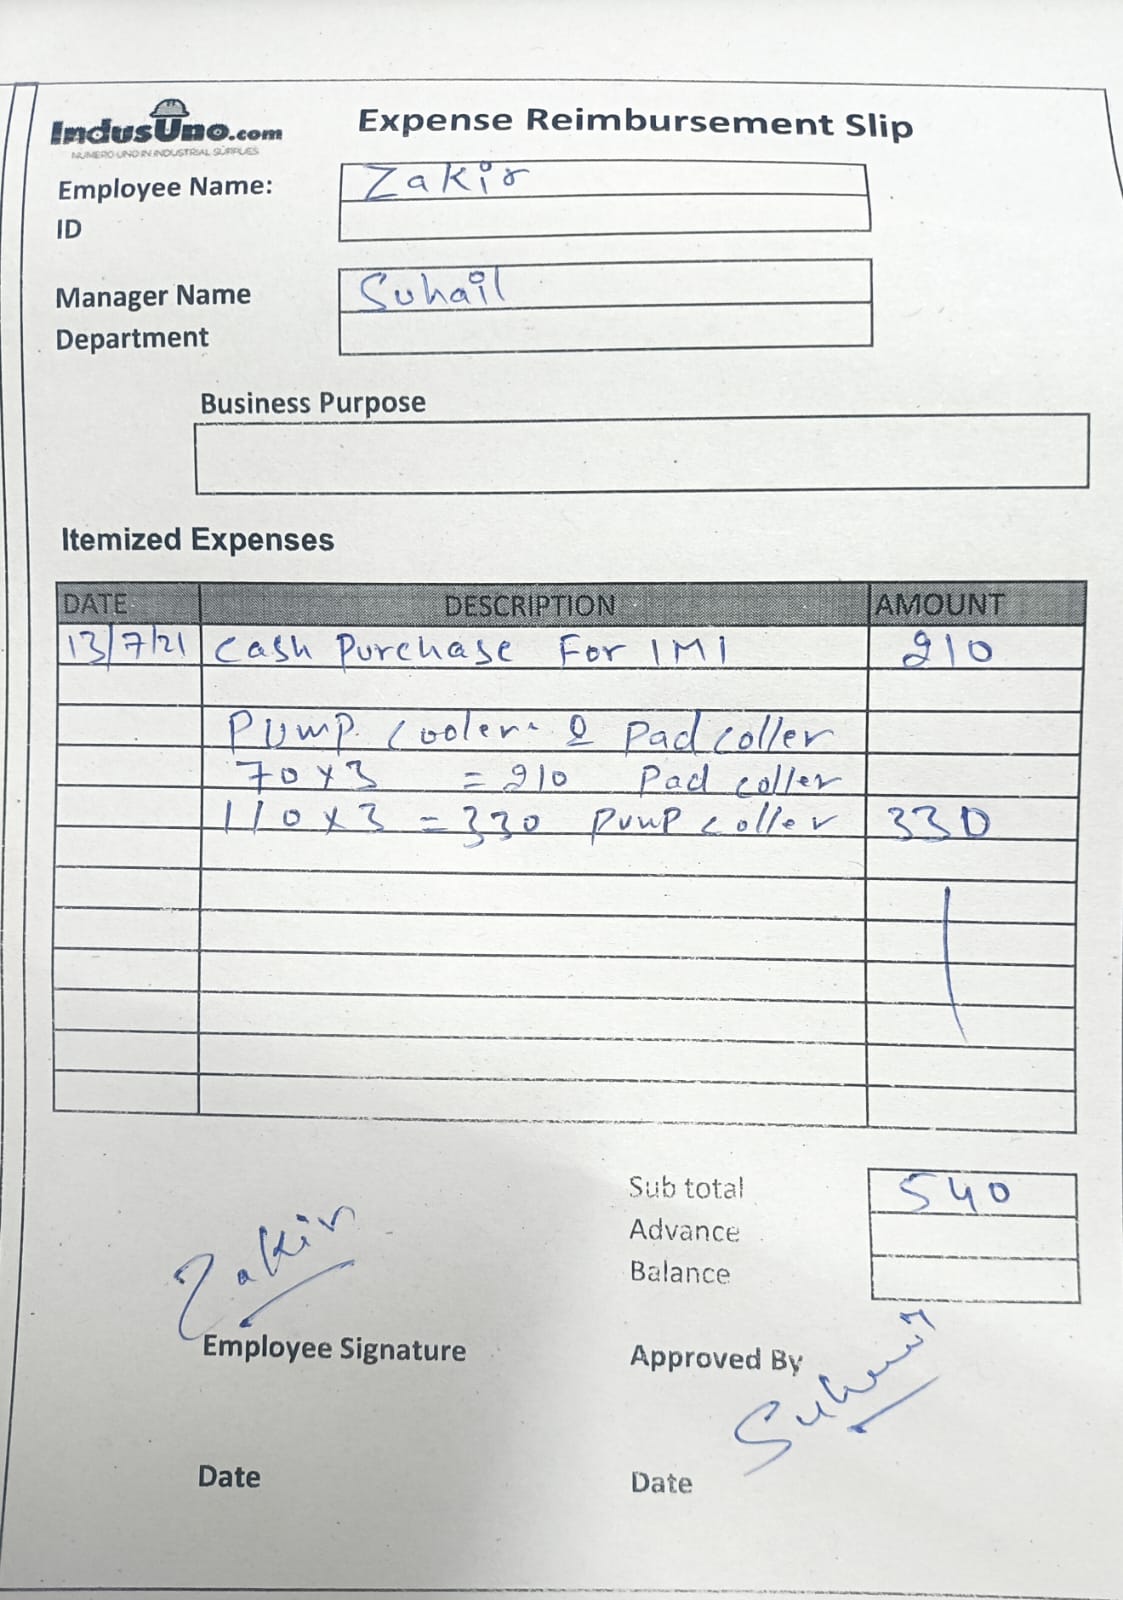 IndusUno.com
NUMERO UNO IN INDUSTRIAL SUPPLIES
Expense Reimbursement Slip
Employee Name: Zakir
ID
Manager Name Suhail
Department
Business Purpose
Itemized Expenses
DATE DESCRIPTION AMOUNT
13/7/21 Cash Purchase For IMI 210
Pump. Cooler & Pad coller
70 x 3 = 210 Pad coller
110 x 3 = 330 Pump coller 330
Sub total 540
Advance
Balance
Zakir
Employee Signature Approved By
Date Date